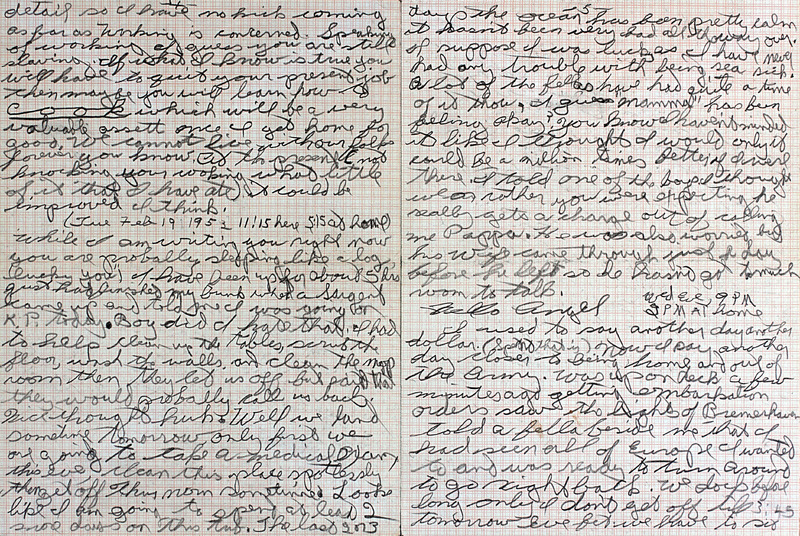 detail so I have no kick coming
as far as working is concerned. Speaking
of working I guess you are still
slaving. If what I know is true you
will have to quit your present job
then maybe you will learn how to
COOK which will be a very
valuable assett once I get home for
good. We cannot live with our folks
forever you know. At the present not
knocking your cooking what little
of it that I have ate, it could be
improved I think.
(Tue Feb 19 1952 11:15 here 5:15 at home)
While I am writing you right now
you are probally sleeping like a log,
lucky you. I have been up for about 5 hrs
just had finished my bunk when a Sargent
came up and told me I was going on
K.P. today. Boy did I hate that. I had
to help clean up the tables, scrub the
floor, wash the walls, and clean the mop
room then they let us off but said that
they would probally call us back.
Nice thought huh? Well we land
sometime tomorrow only first we
are going to take a medical exam
this eve, clean this place spotlessly
then get off this morn sometime. Looks
like I am going to spend at least 2
more days on this tub. The last 2 or 3
days the ocean has been pretty calm,
it hasn't been very bad all the way over.
I suppose I was lucky as I have never
had any trouble with being sea sick.
A lot of the fellas have had quite a time
of it thou. I guess "mamma" has been
feeling okay? You know I haven't minded
it like I thought I would only it
could be a million times better if I were
there. I told one of the boys I thought
we as rather you were expecting he
really gets a charge out of calling
me Pappa. He was also worried but
his wife came through just a day
before he left so he hasn't got so much
room to talk.
Wed Eve, 9 PM
3 PM AT home
Hello Angel
I used to say another day another
dollar. (3 months) now I say another
day closer to being home and out of
the Army. Was up on deck a few
minutes ago getting embarkation
orders saw the lights of Bremerhaven
told a fella beside me that I
had seen all of Europe I wanted
to and was ready to turn around
to go right back. We dock before
long only I don't get off till 3:45
tomorrow eve yet we have to six